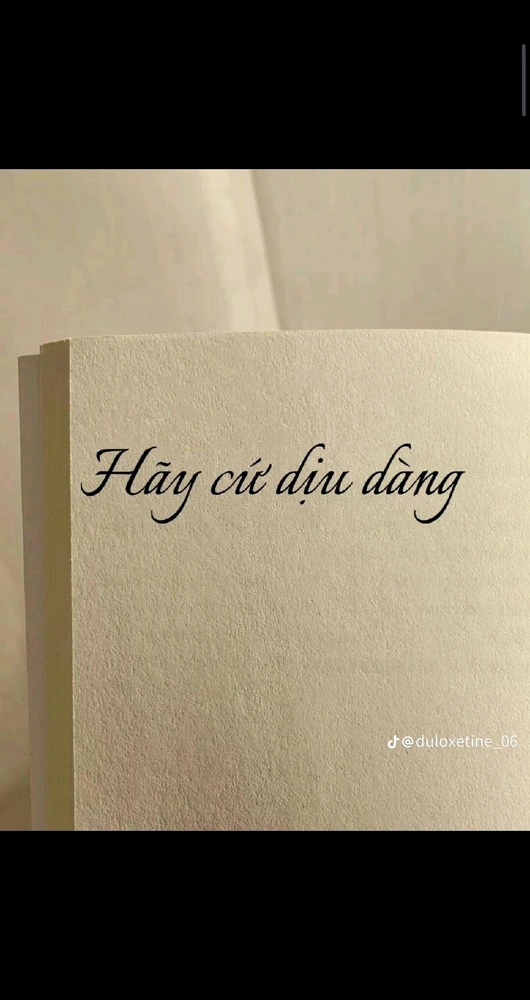 Hãy cứ dịu dàng
@duloxetine_06